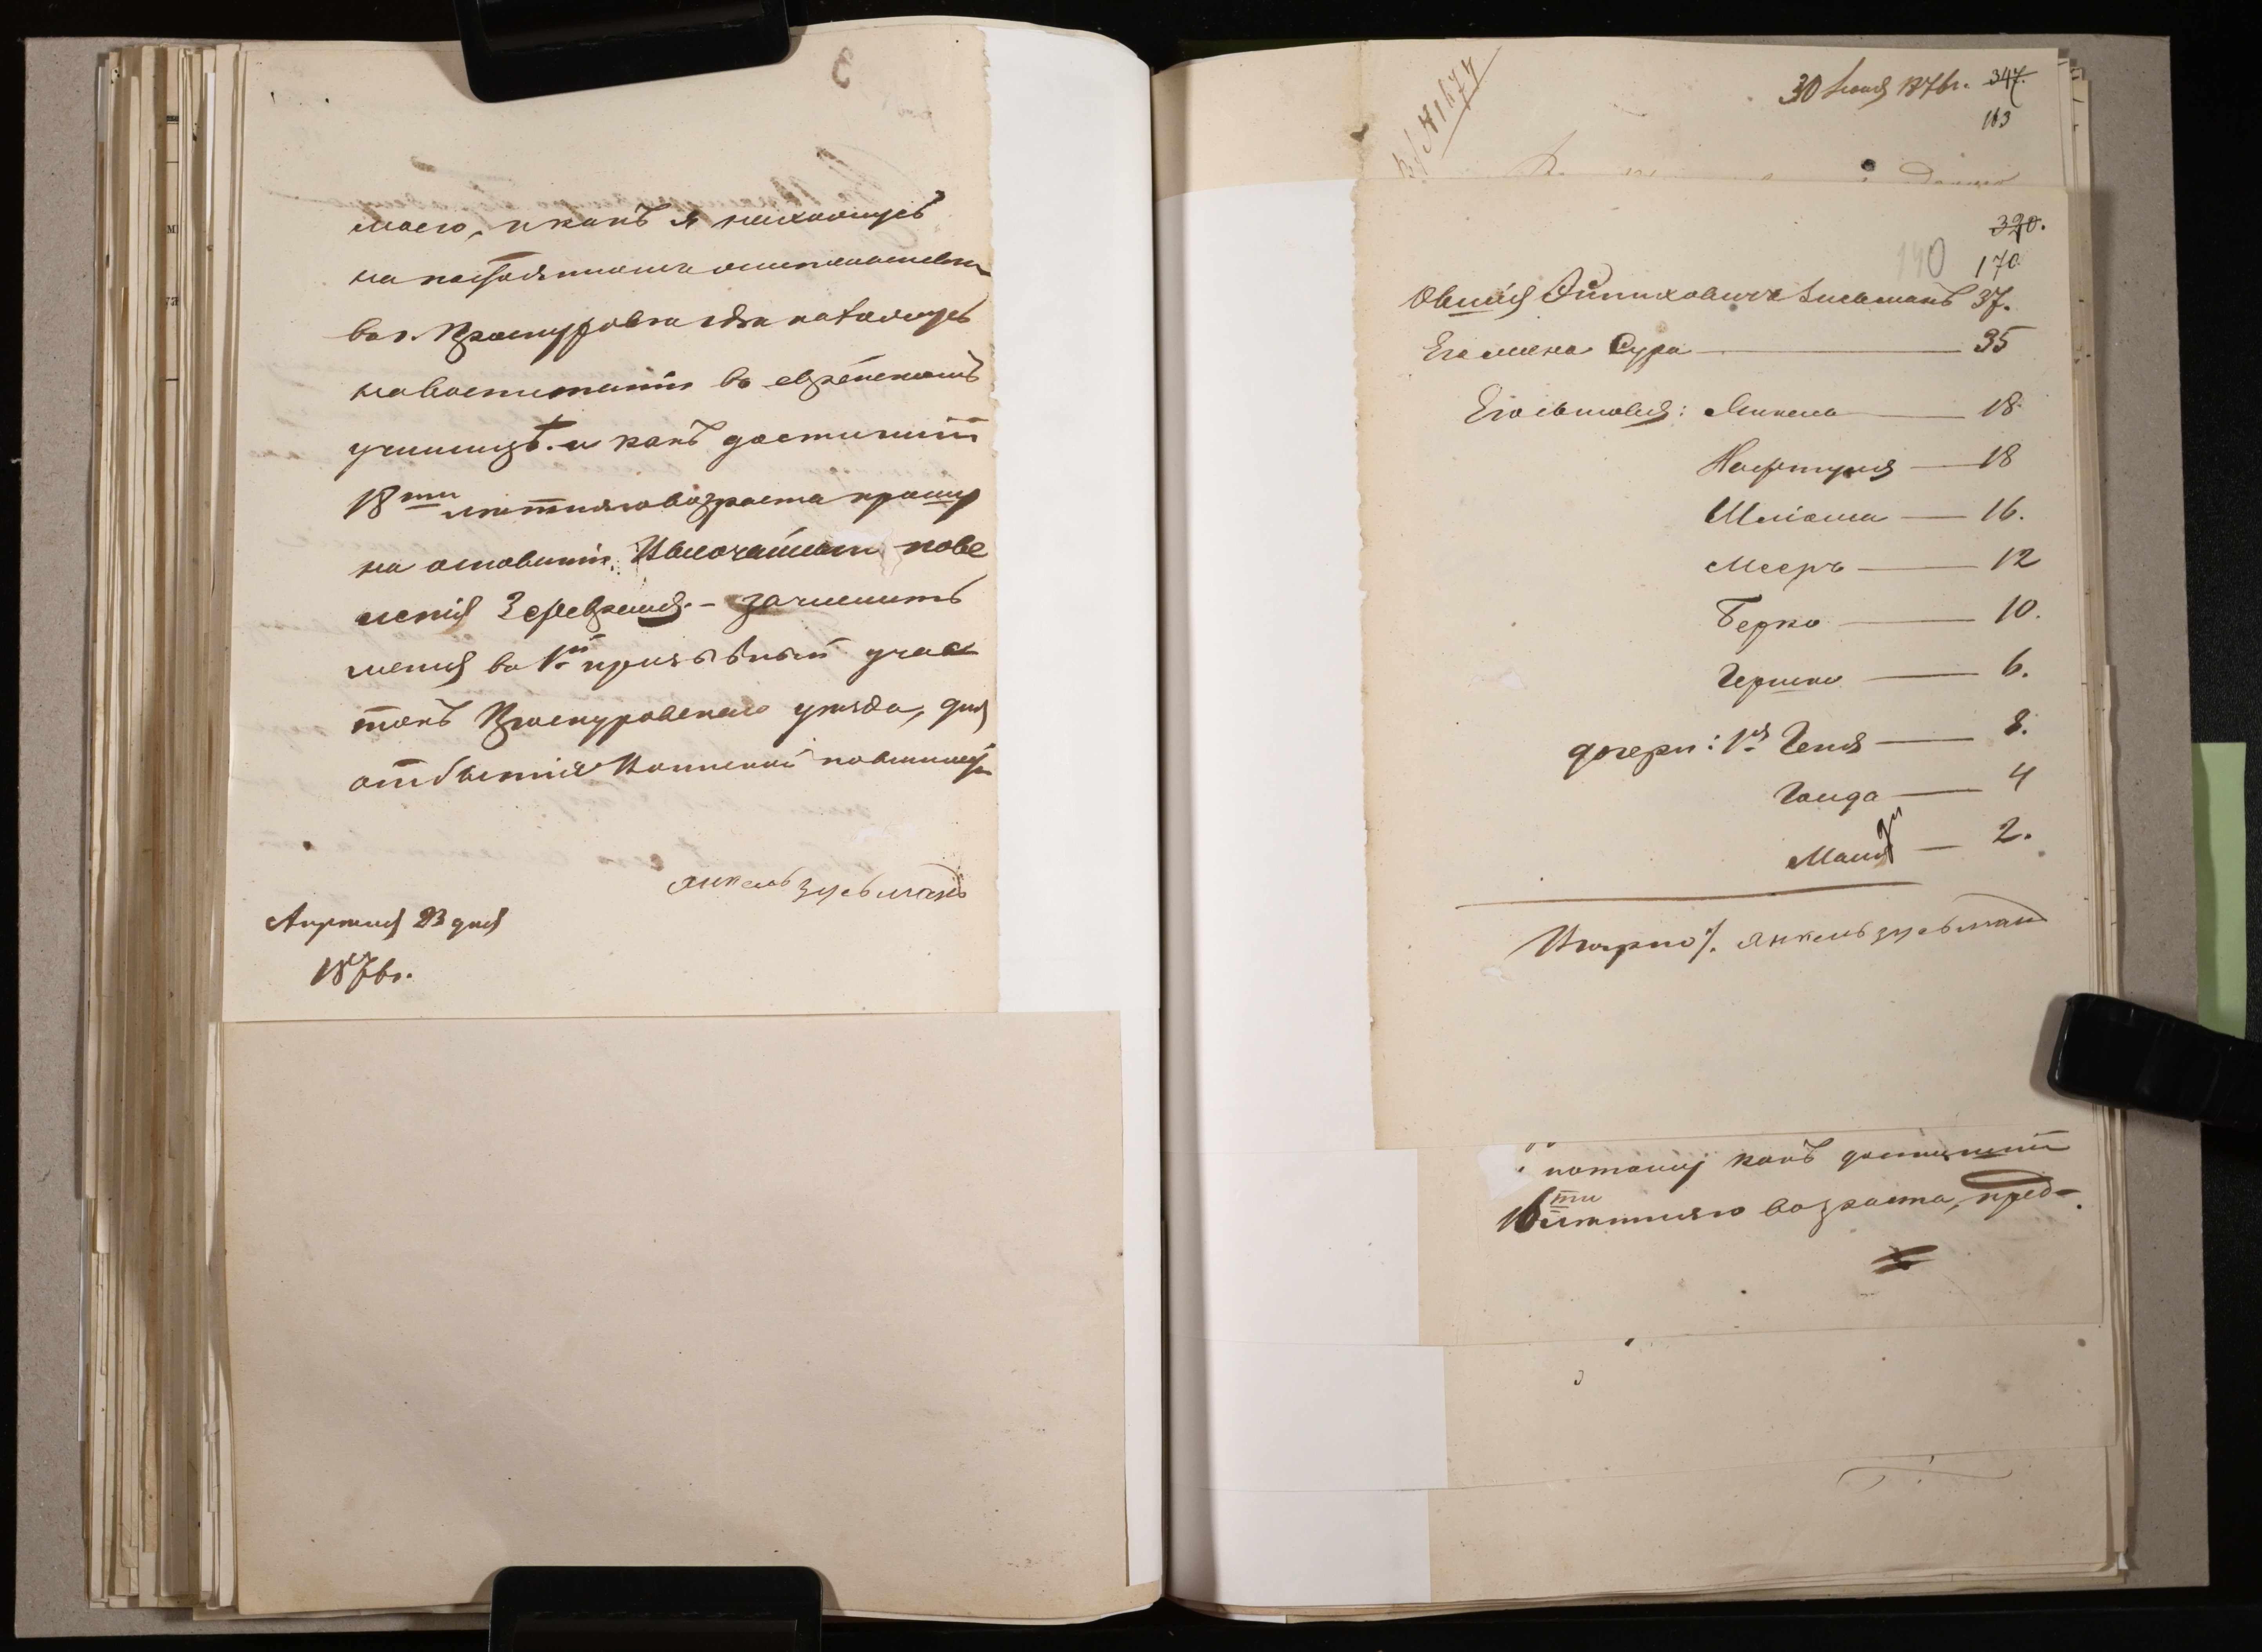 моего, и какъ я нахожусь
на постоянномъ жительствѣ
въ г. Проскуровѣ гдѣ нахожусь
на воспитаніи въ еврейскомъ
училищѣ. и какъ достигшій
18ти лѣтняго возраста прошу
на основаніи Высочайшаго пове
ленія 3 февраля. – зачислить
меня въ 1й призывный учас
токъ Проскуровскаго уѣзда, для
отбытія Воинской повинности
Янкель Зусьманъ
Апрѣля 23 дня
1876г.
№ 1677
30 1876г. 347.
163
390.
140 170
Овшія Зисьманъ 37.
Его жена Сура — 35
Его сыновья: Янкель — 18.
Нафтула — 18
Шліома — 16.
Мееръ — 12
Берко — 10.
Гершко — 6.
дочери: 1я Геня — 8.
Гольда — 4
Маня — 2.
Вѣрно /. Янкель Зусьман
потому какъ достигшій
16ти лѣтняго возраста, пред-